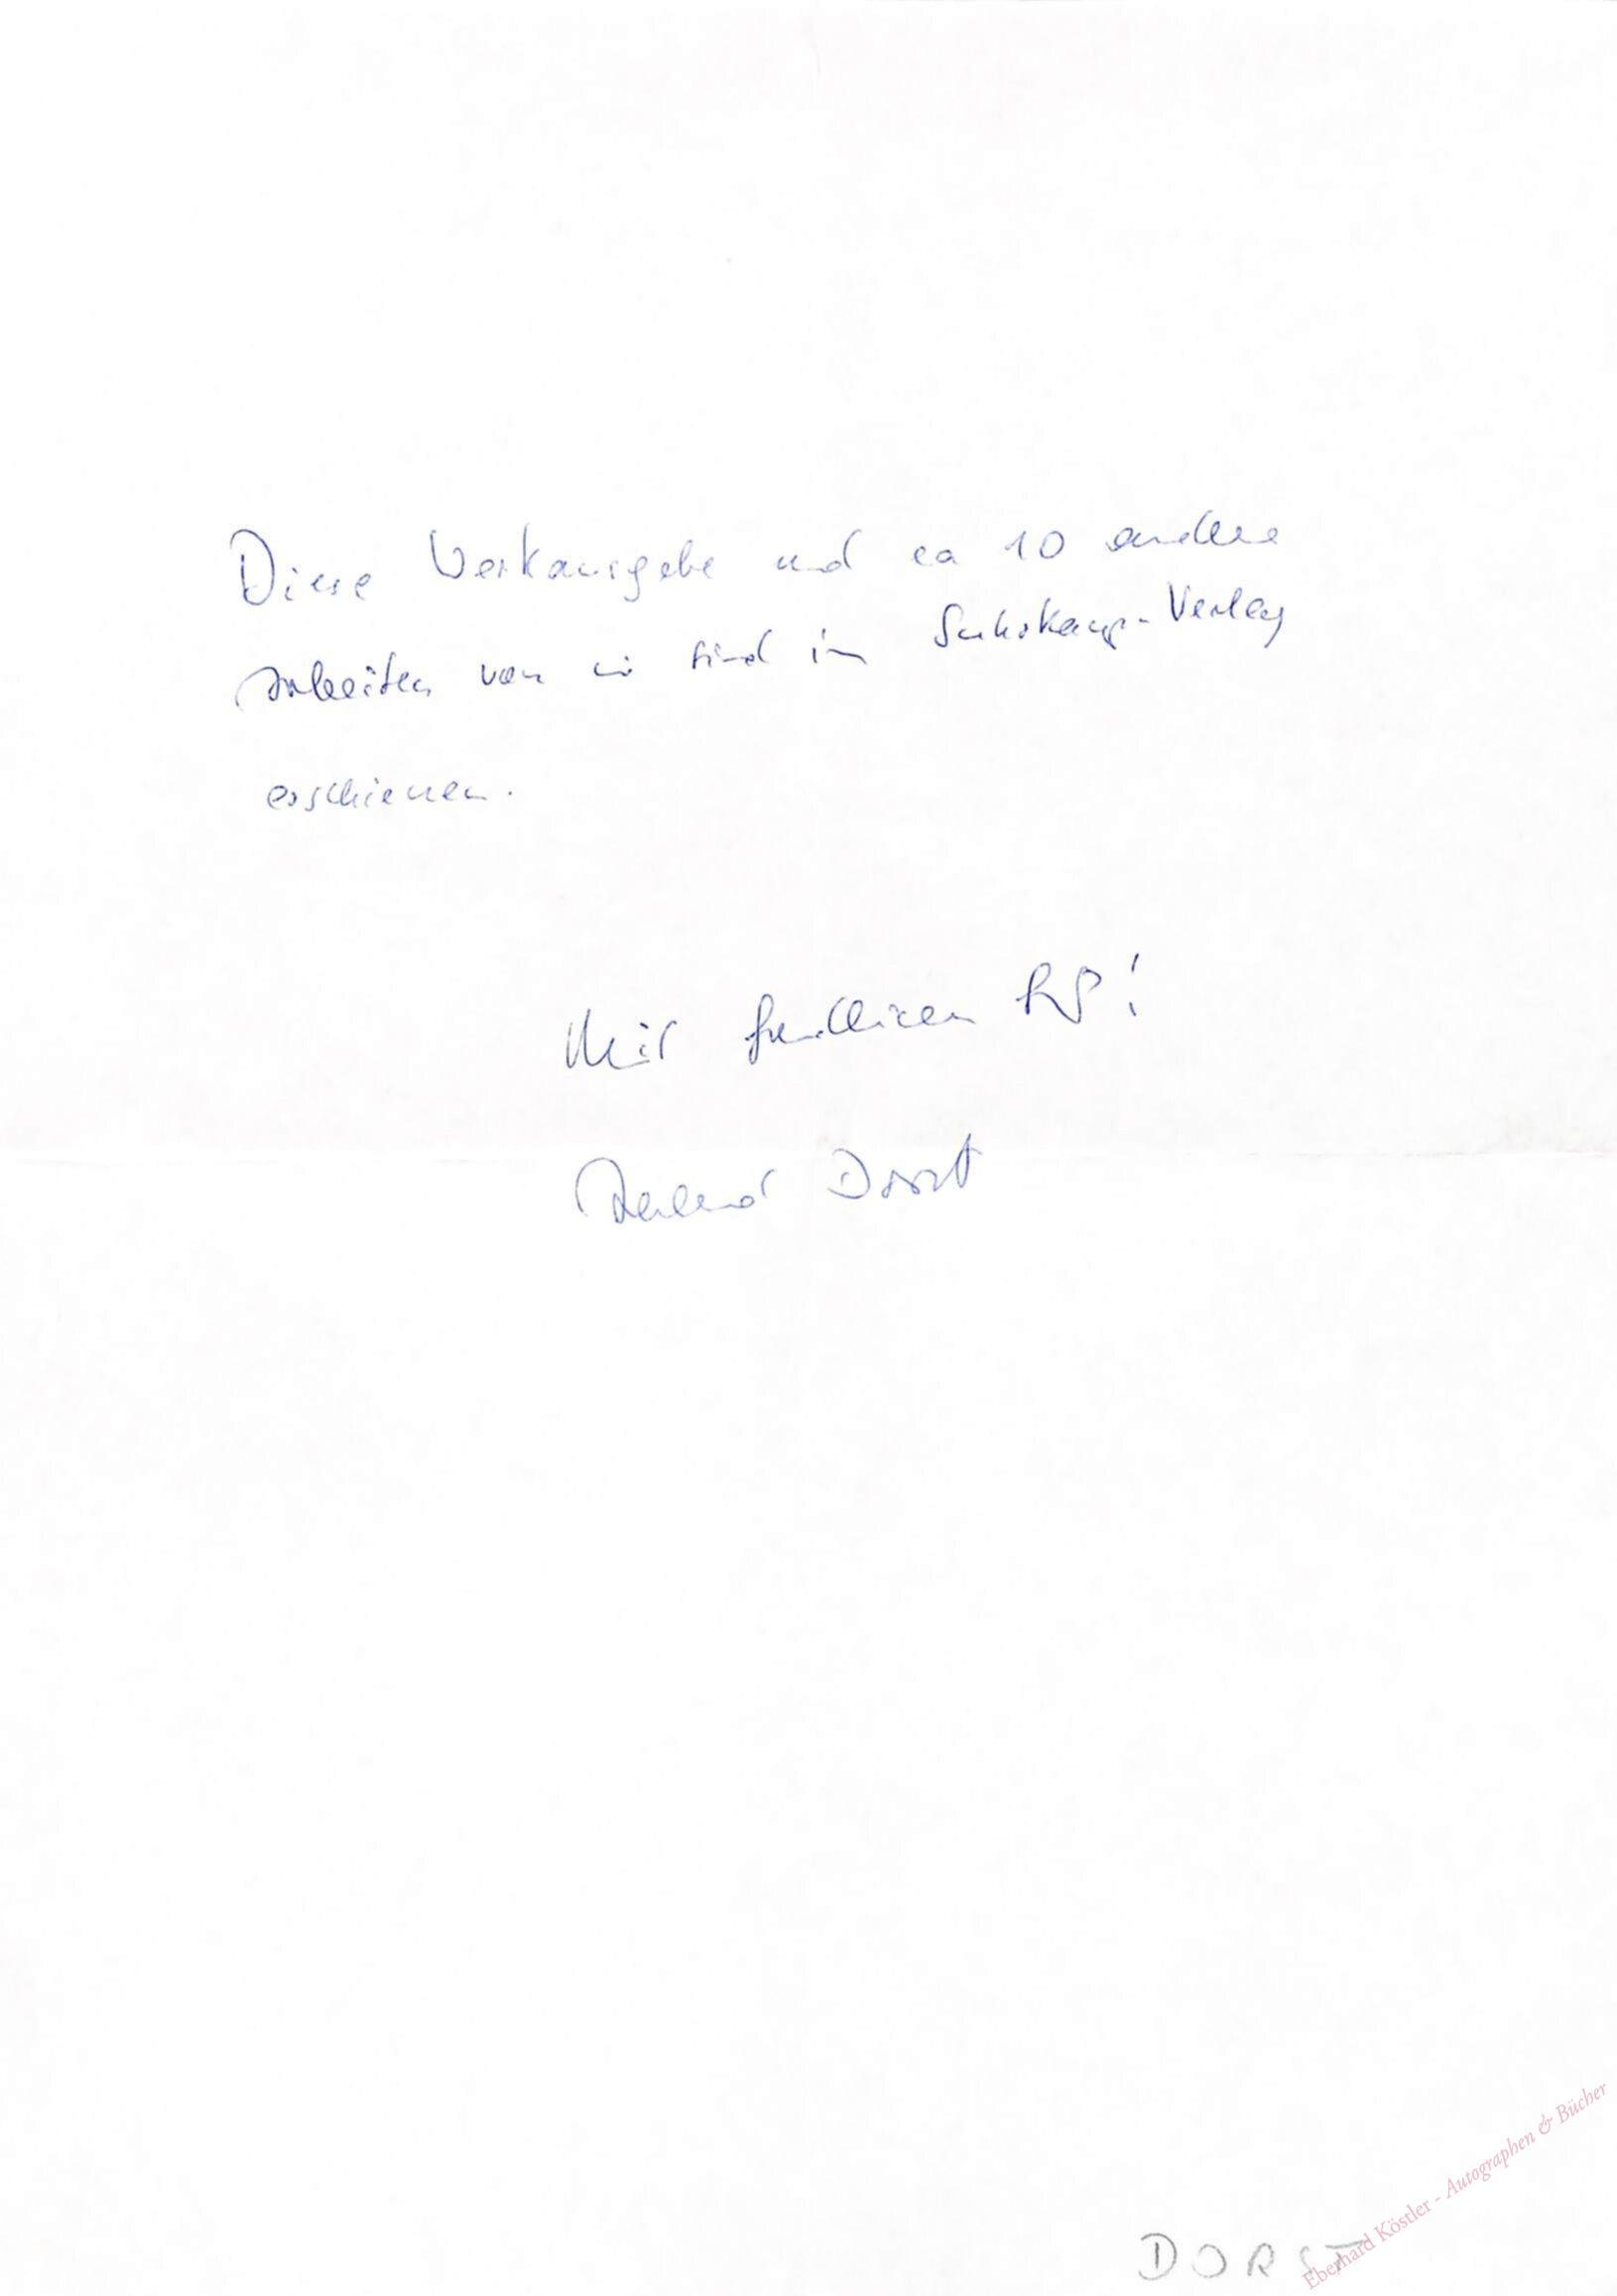 Diese Werkausgabe und ca 10 andere
Arbeiten von mir sind im Suhrkamp-Verlag
erschienen.
Mit freundlichen Gruß!
Tankred Dorst
DORST
Eberhard Köstler - Autographen & Bücher